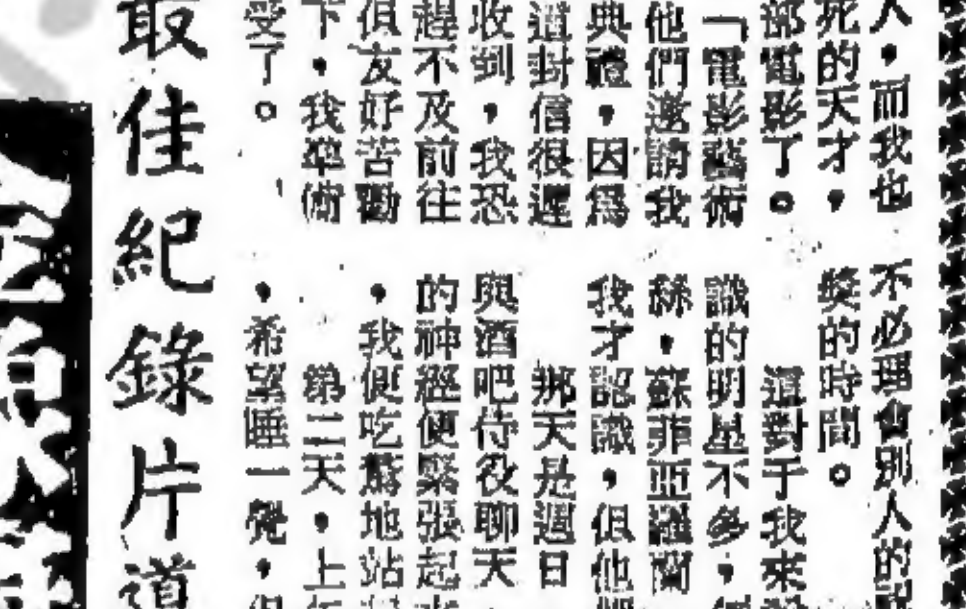 人，而我也
死的天才，
部電影了。
「電影藝術
他們邀請我
典禮，因爲
這封信很遲
收到，我恐
趕不及前往
但友好苦勸
下，我準備
受了。
不必理會別人的
獎的時間。
這對于我來
識的明星不多，
絲，蘇菲亞羅蘭
我才認識，但他
那天是週日
與酒吧侍役聊天
的神經便緊張起
，我便吃驚地站
第二天，上
，希望睡一覺，但
最佳紀錄片導